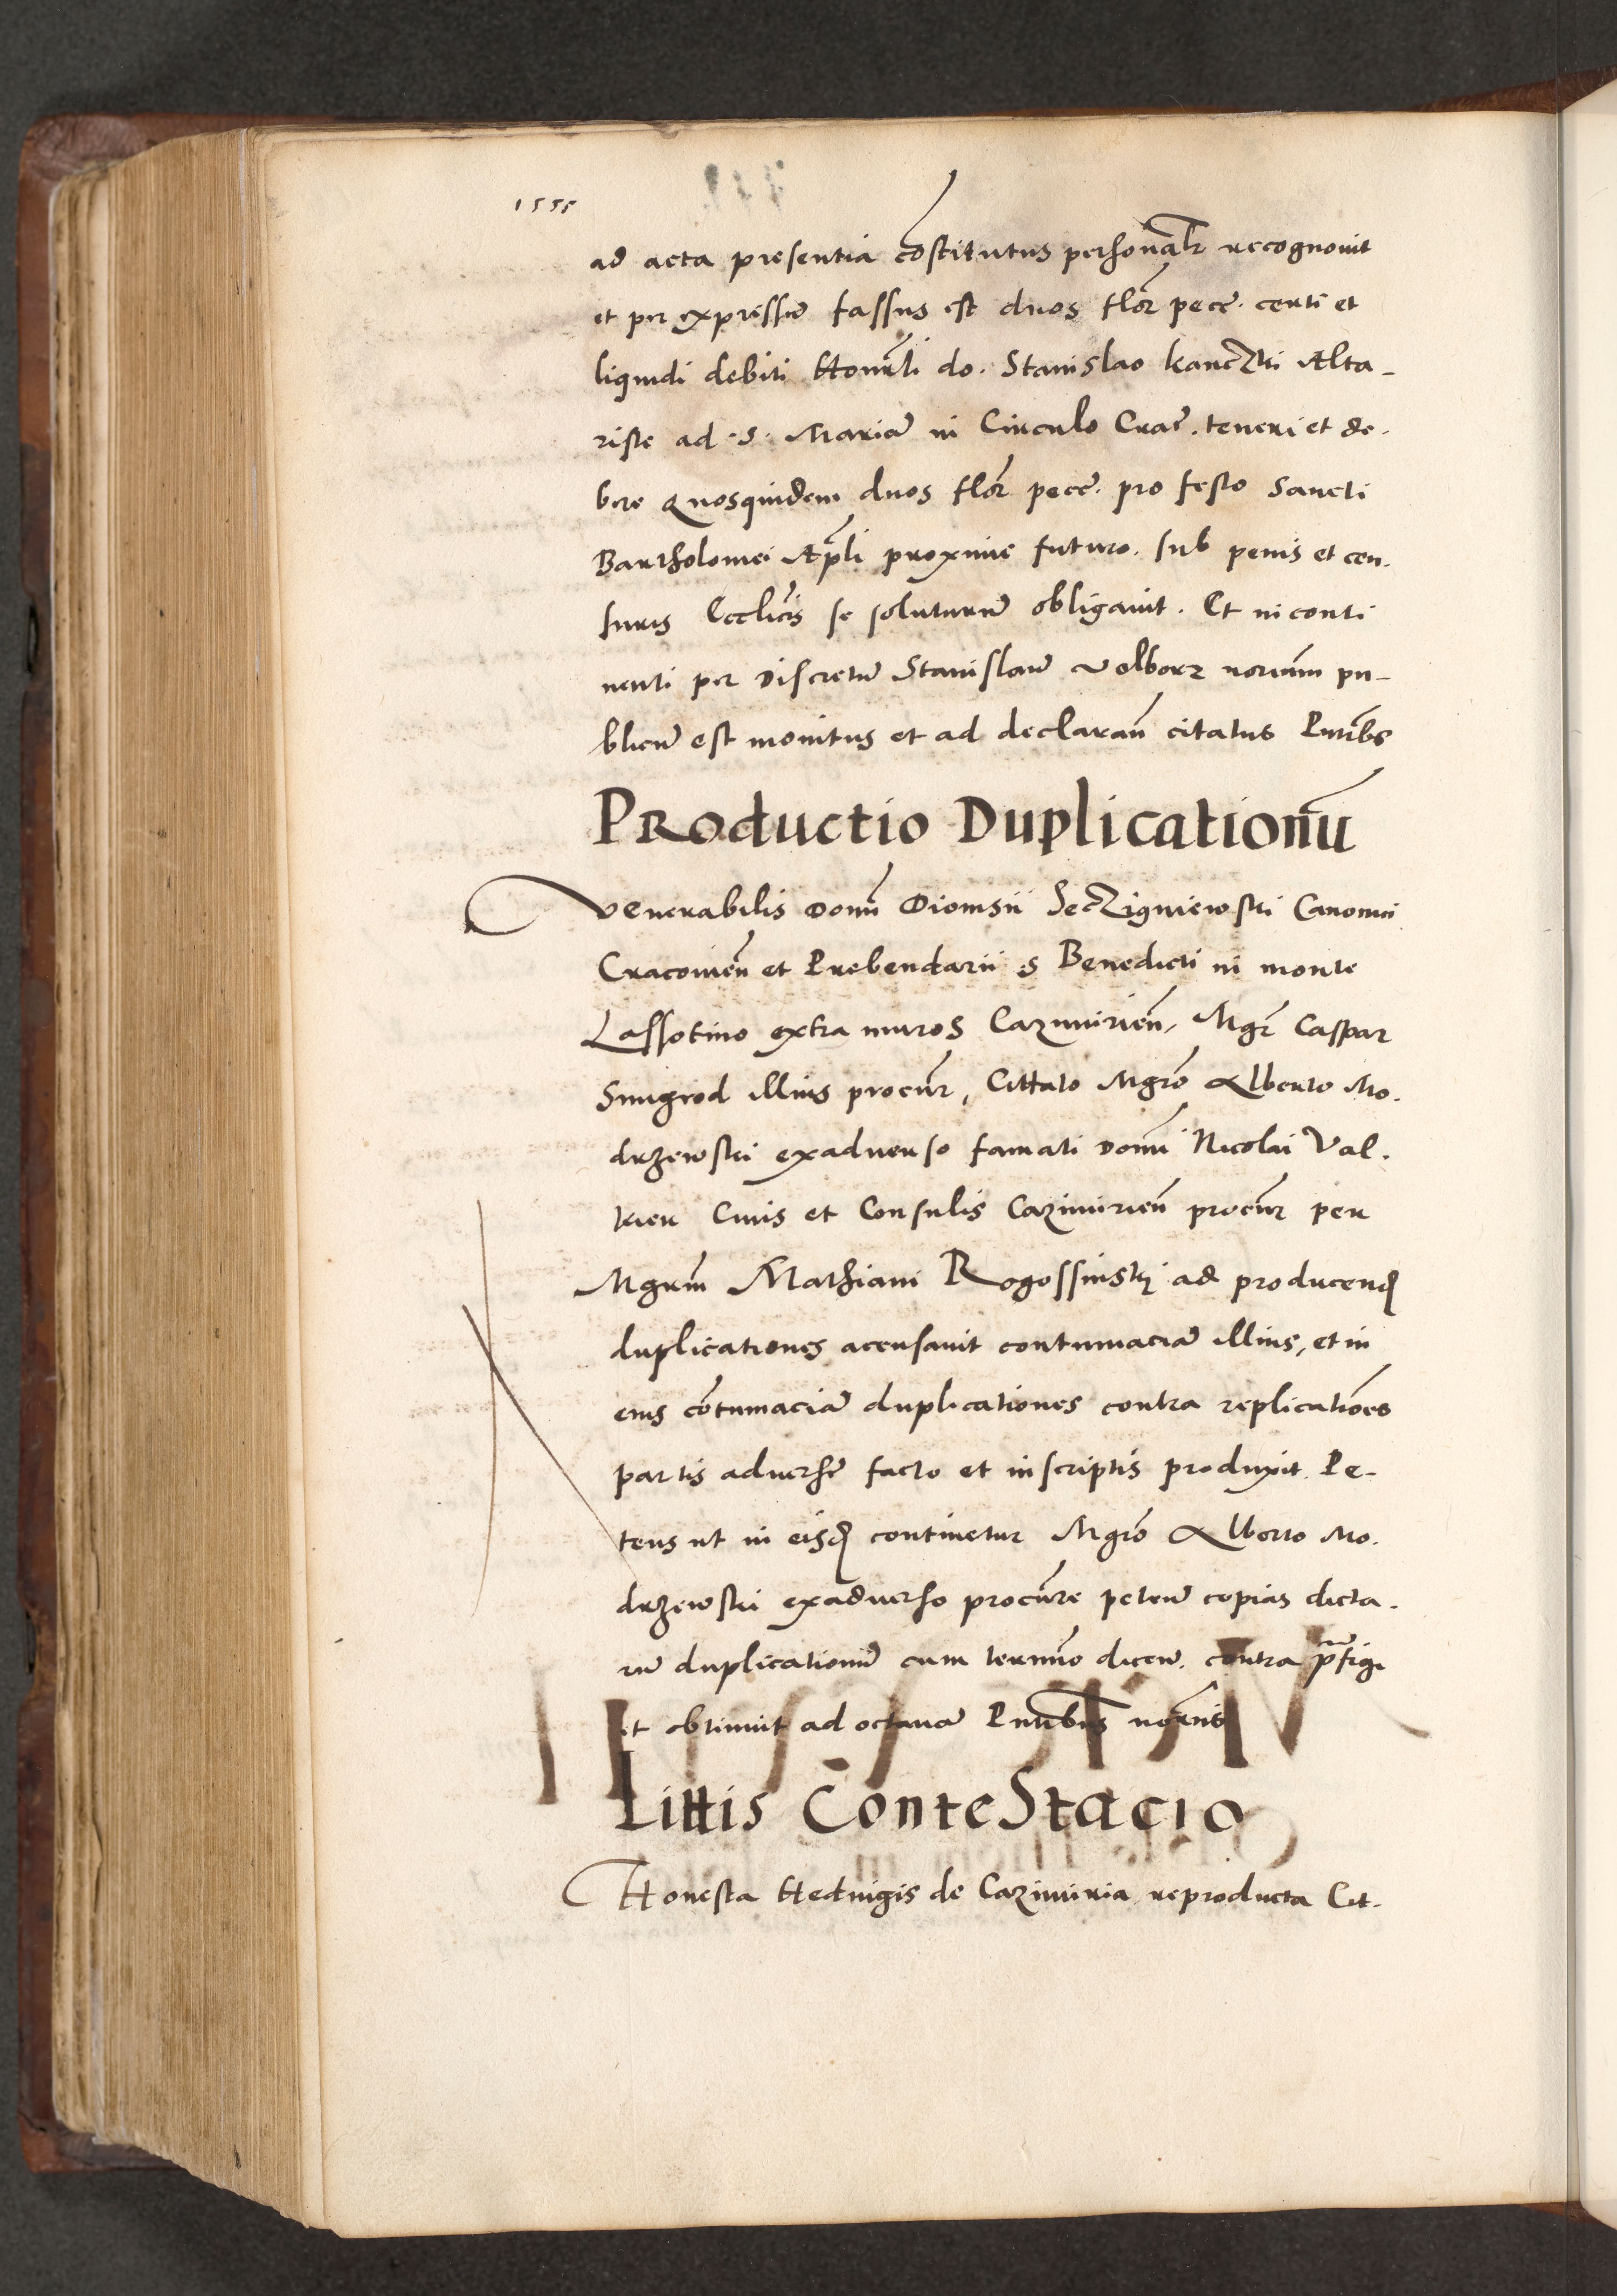 1555
ad acta presentia cōstitutus personalr recognouit
et per expressū fassus est duos flor pece. certi et
liquidi debiti Honrli do. Stanislao kanczki Alta-
riste ad .S. Mariā in Circulo Crac. teneri et de-
bere Quosquidem duos flor pece. pro festo Sancti
Bartholomei Apli proxime futuro. sub penis et cen-
suris Ecclicis se soluturū obligauit. Et in conti
nenti per Discretū Stanislaū Volborz norium pu-
blicū est monitus et ad declarañ citatus Pntibs
Productio Duplicationū
Venerabilis Domī Dionisii Secziguiewski Canonici
Cracovień et Prebendarii S Benedicti in monte
Lassotino extra muros Cazimirień, Mgr Caspar
Smigrod illius procur, Cittato Mgro Alberto Mo-
drzewski exaduerso famati Domī Nicolai Val-
kier Ciuis et Consulis Cazimirień procur per
Mgrum Mathiam Rogossinski ad producend
duplicationes acensauit contumaciā illius, et in
eius cōtumaciā duplicationes contra replicatiōes
partis aduerse facto et in scriptis produxit. Pe-
tens ut in eisd continetur Mgro Alberto Mo-
drzewski exaduerso procure petenē copias dicta-
rū duplicationū cum termino dicen. contra pfigi
et obtinuit ad octauā Pntibus norriis
Littis ConteStacio
Honesta Heduigis de Cazimiria reproducta Cit-